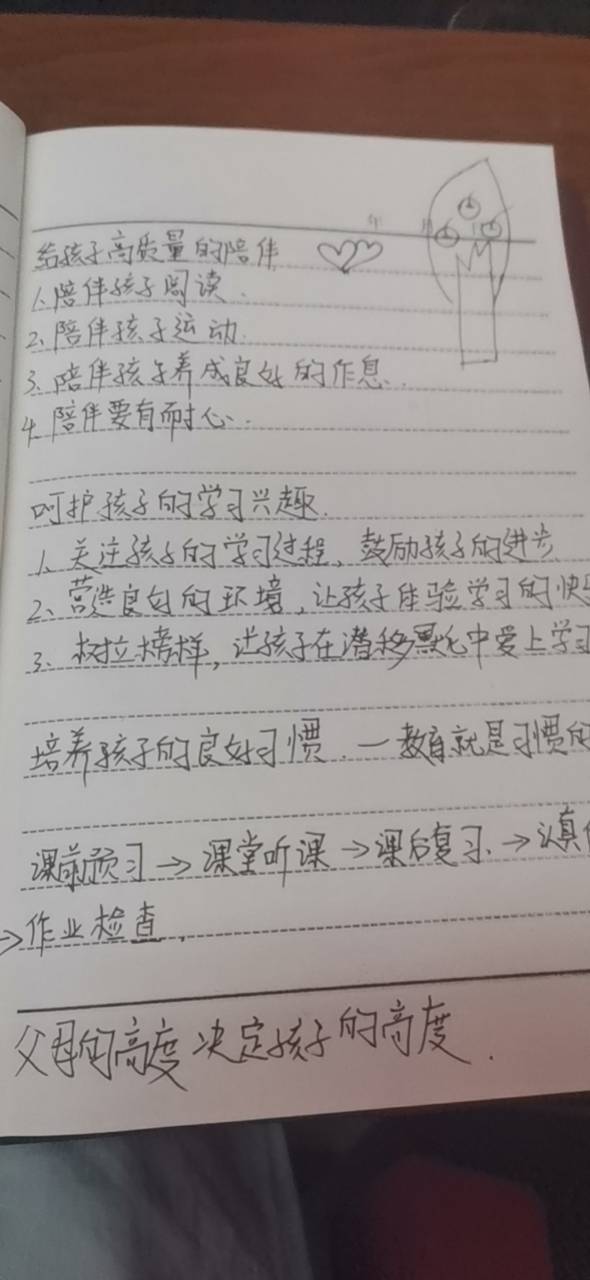 给孩子高质量的陪伴
1、陪伴孩子阅读.
2、陪伴孩子运动.
3、陪伴孩子养成良好的作息.
4、陪伴要有耐心.
呵护孩子的学习兴趣.
1、关注孩子的学习过程、鼓励孩子的进步
2、营造良好的环境,让孩子体验学习的快
3、树立榜样,让孩子在潜移默化中爱上学习
培养孩子的良好习惯.一教育就是习惯的
课前预习→课堂听课→课后复习.→认真
→作业检查.
父母的高度决定孩子的高度.